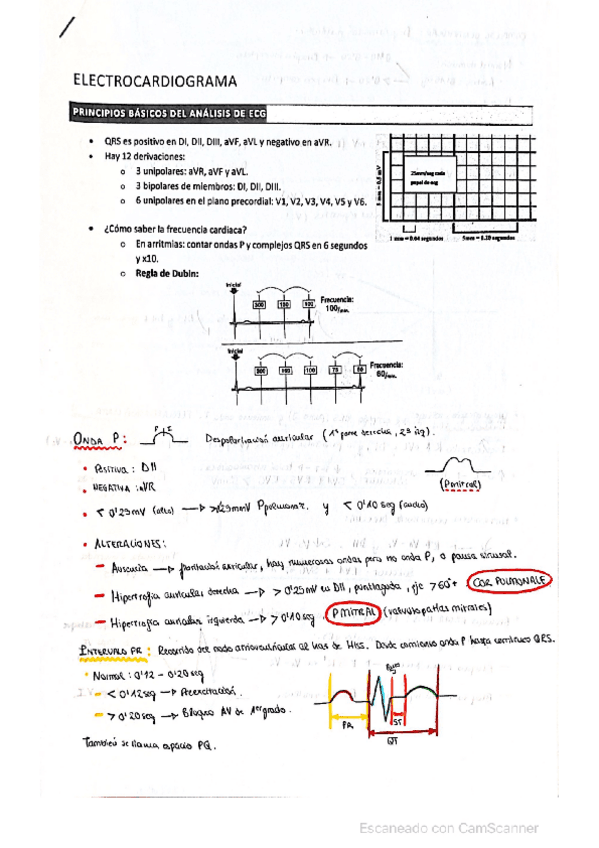 ELECTROCARDIOGRAMA
PRINCIPIOS BÁSICOS DEL ANÁLISIS DE ECG
• QRS es positivo en DI, DII, DIII, aVF, aVL y negativo en aVR.
• Hay 12 derivaciones:
o 3 unipolares: aVR, aVF y aVL.
o 3 bipolares de miembros: DI, DII, DIII.
o 6 unipolares en el plano precordial: V1, V2, V3, V4, V5 y V6.
25mm/seg cada
papel de ecg
1 mm = 0.04 segundos
5mm = 0.20 segundos
• ¿Cómo saber la frecuencia cardiaca?
o En arritmias: contar ondas P y complejos QRS en 6 segundos
y x10.
o Regla de Dubin:
Inicial
300 150 100
Frecuencia:
100/min.
Inicial
300 150 100 75 60
Frecuencia:
60/min.
ONDA P: Despolarización auricular (1º parte derecha, 2º izq).
• POSITIVA: DII
(Pmitral)
• NEGATIVA: aVR
• < 0'25 mV (alto) y < 0'10 seg (ancho)
• ALTERACIONES:
- Ausencia → fibrilación auricular, hay numerosas ondas pero no onda P, o pausa sinusal.
- Hipertrofia auricular derecha → > 0'25mV en DII, puntiaguda, eje > 60º+. COR PULMONALE
- Hipertrofia auricular izquierda → > 0'10 seg. P MITRAL (valvulopatías mitrales)
INTERVALO PR: Recorrido del nodo atrioventricular al haz de His. Desde comienzo onda P hasta comienzo QRS.
• Normal: 0'12 - 0'20 seg
- < 0'12 seg → Preexcitación.
- > 0'20 seg → Bloqueo AV de 1er grado.
PR
ST
QT
También se llama espacio PQ.
Escaneado con CamScanner